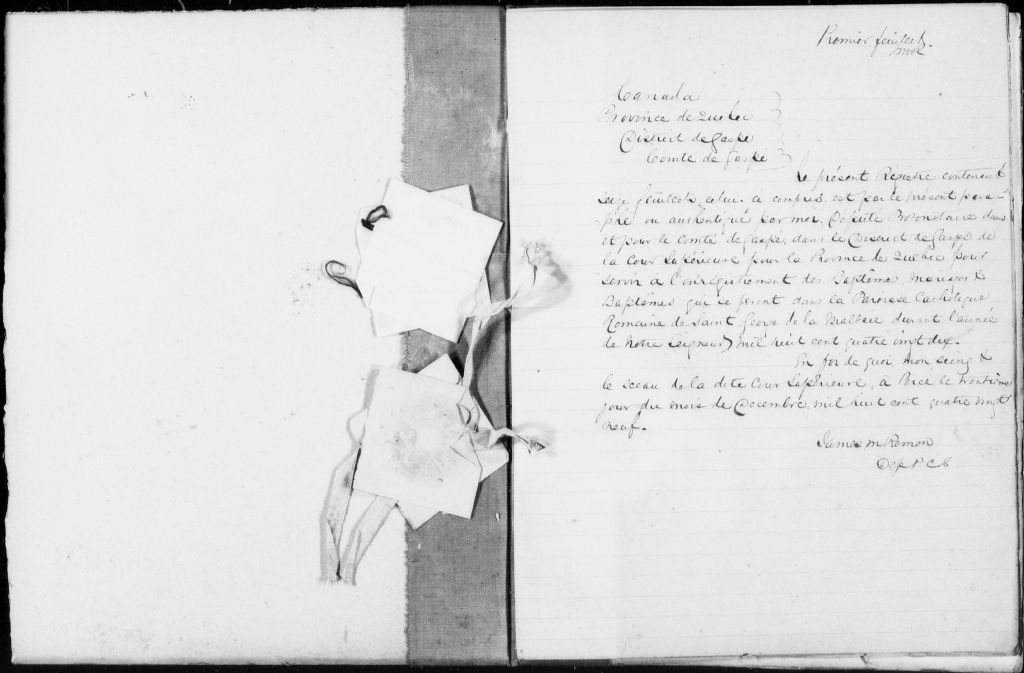 Premier feuillet.
Canada
Province de Québec
District de Gaspé
Comté de Gaspé
Le présent Régistre contenant
seize feuillets, celui-ci compris, est par le présent para-
-phé ou authentiqué par moi, Député Protonotaire dans
et pour le Comté de Gaspé, dans le District de Gaspé de
la Cour Supérieure pour la Province de Québec pour
servir à l'enrégistrement des Baptême, Mariages &
Baptêmes qui se feront dans la Paroisse Catholique
Romaine de Saint George de la Malbaie durant l'année
de Notre Seigneur mil huit cent quatre vingt dix.
En foi de quoi, mon seing &
le sceau de la dite Cour Supérieure, à Percé le trentième
jour du mois de Décembre, mil huit cent quatre vingt
neuf.
James M Remon
Dep. P. C. S